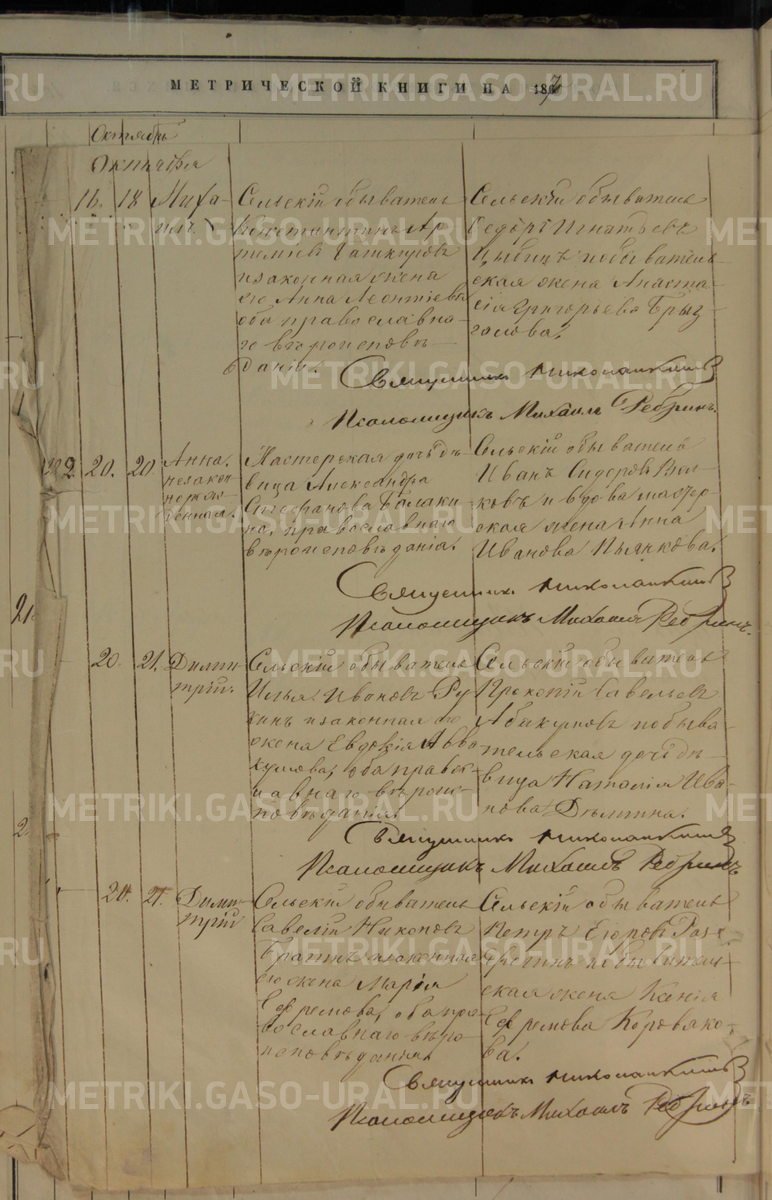 МЕТРИЧЕСКОЙ КНИГИ НА 187
Октябрь
Октября
16. 18 Миха-
илъ
Сельскiй обыватель
Константинъ Ар-
темьевъ
и законная жена
его Анна Леонтiева
оба православна-
го вѣроисповѣ-
данiя.
Сельскiй обыватель
Ѳедоръ Игнатьевъ
и обыватель-
ская жена Анаста-
сiя Григорьева Брыз-
галова.
Священникъ
Псаломщикъ Михаилъ Ребринъ.
20. 20 Анна.
незакон-
норож-
денная.
Мастерская дочь дѣ-
вица Александра
Стефанова Балаки-
на, православнаго
вѣроисповѣданiя.
Сельскiй обыватель
Иванъ Сидоровъ
и вдова мастер-
ская жена Анна
Иванова Пьянкова.
Священникъ
Псаломщикъ Михаилъ Ребринъ.
21.
20. 21. Дими-
трiй.
Сельскiй обыватель
Илья Ивановъ
и законная его
жена Евдокiя Авва-
кумова, оба правос-
лавнаго вѣроис-
повѣданiя.
Сельскiй обыватель
Савельевъ
Абакумовъ и обыва-
тельская дочь дѣ-
вица Наталiя Ива-
нова
Священникъ
Псаломщикъ Михаилъ Ребринъ
2
20. 21. Дими-
трiй
Сельскiй обыватель
Савелiй Никоновъ
и законная
его жена Марiя
Ефремова, оба пра-
вославнаго вѣро-
исповѣданiя
Сельскiй обыватель
Петръ Егоровъ
и обыватель-
ская жена Ксенiя
Ефремова Коровяко-
ва.
Священникъ
Псаломщикъ Михаилъ Ребринъ
METRIKI.GASO-URAL.RU